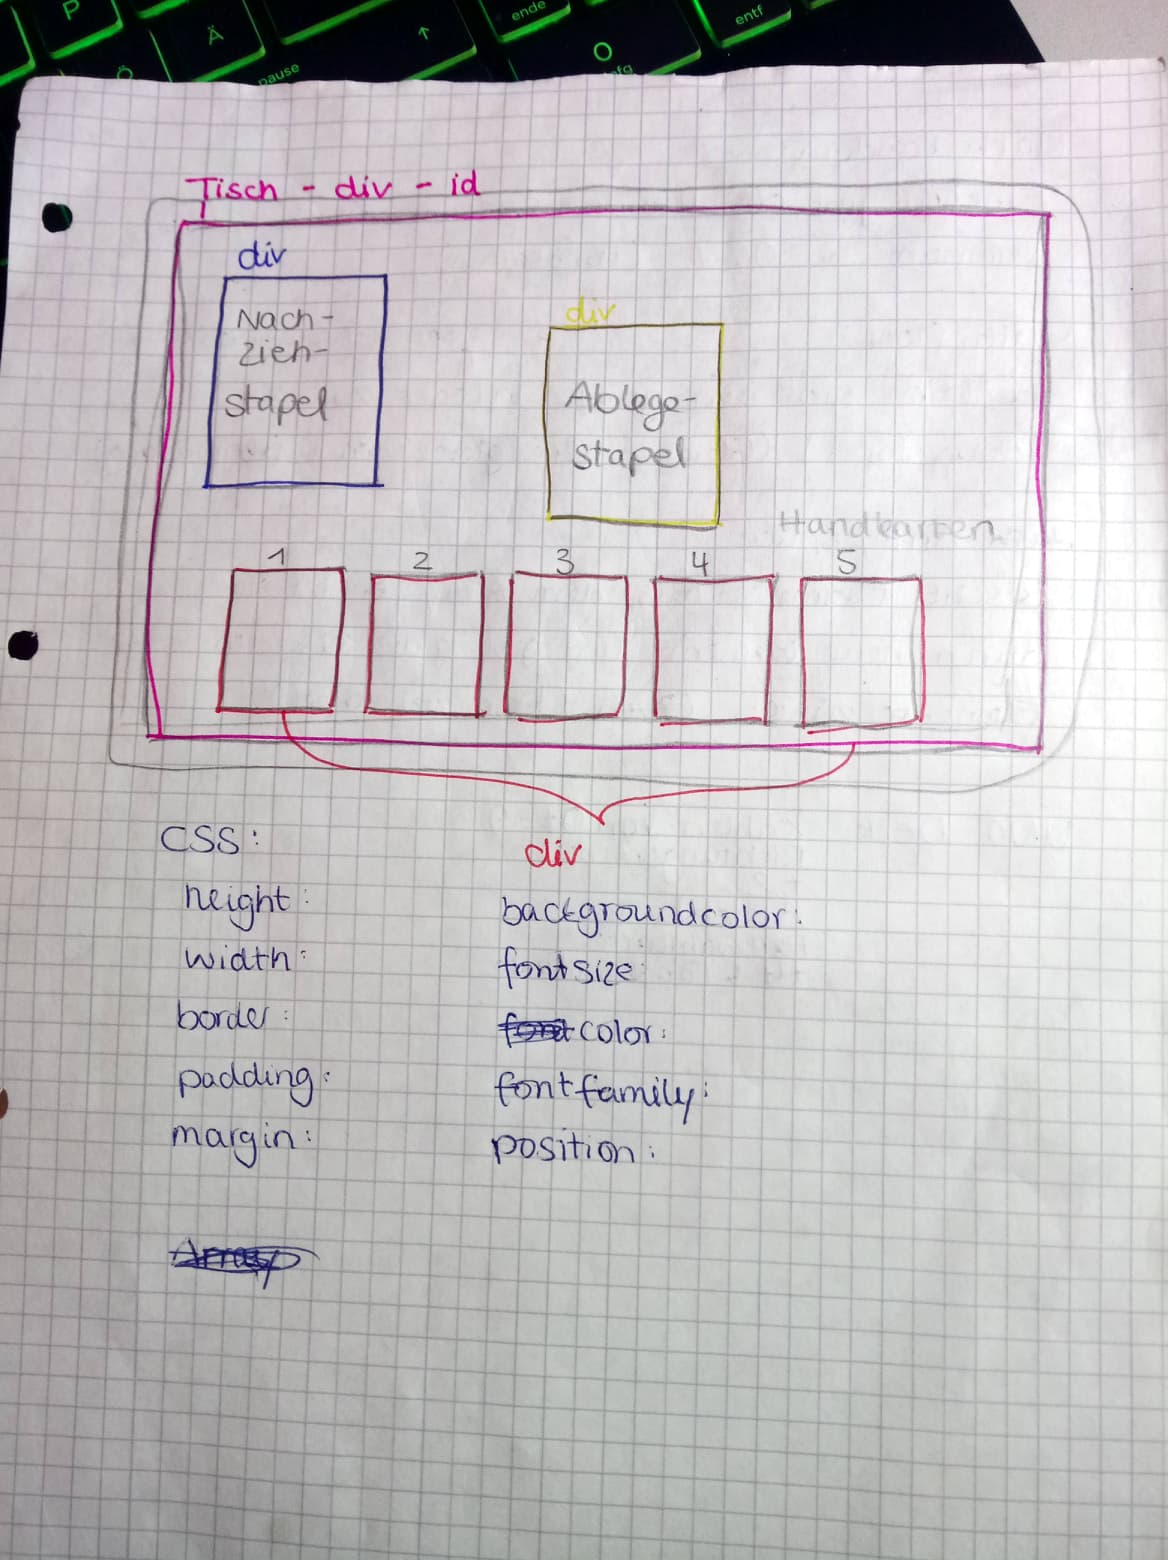 P
Ä
↑
ende
entf
Ö
pause
O
Tisch - div - id
div
Nach-
zieh-
stapel
div
Ablege-
stapel
Handkarten
1 2 3 4 5
div
CSS:
height:
width:
border:
padding:
margin:
backgroundcolor:
fontsize:
color:
fontfamily:
position: